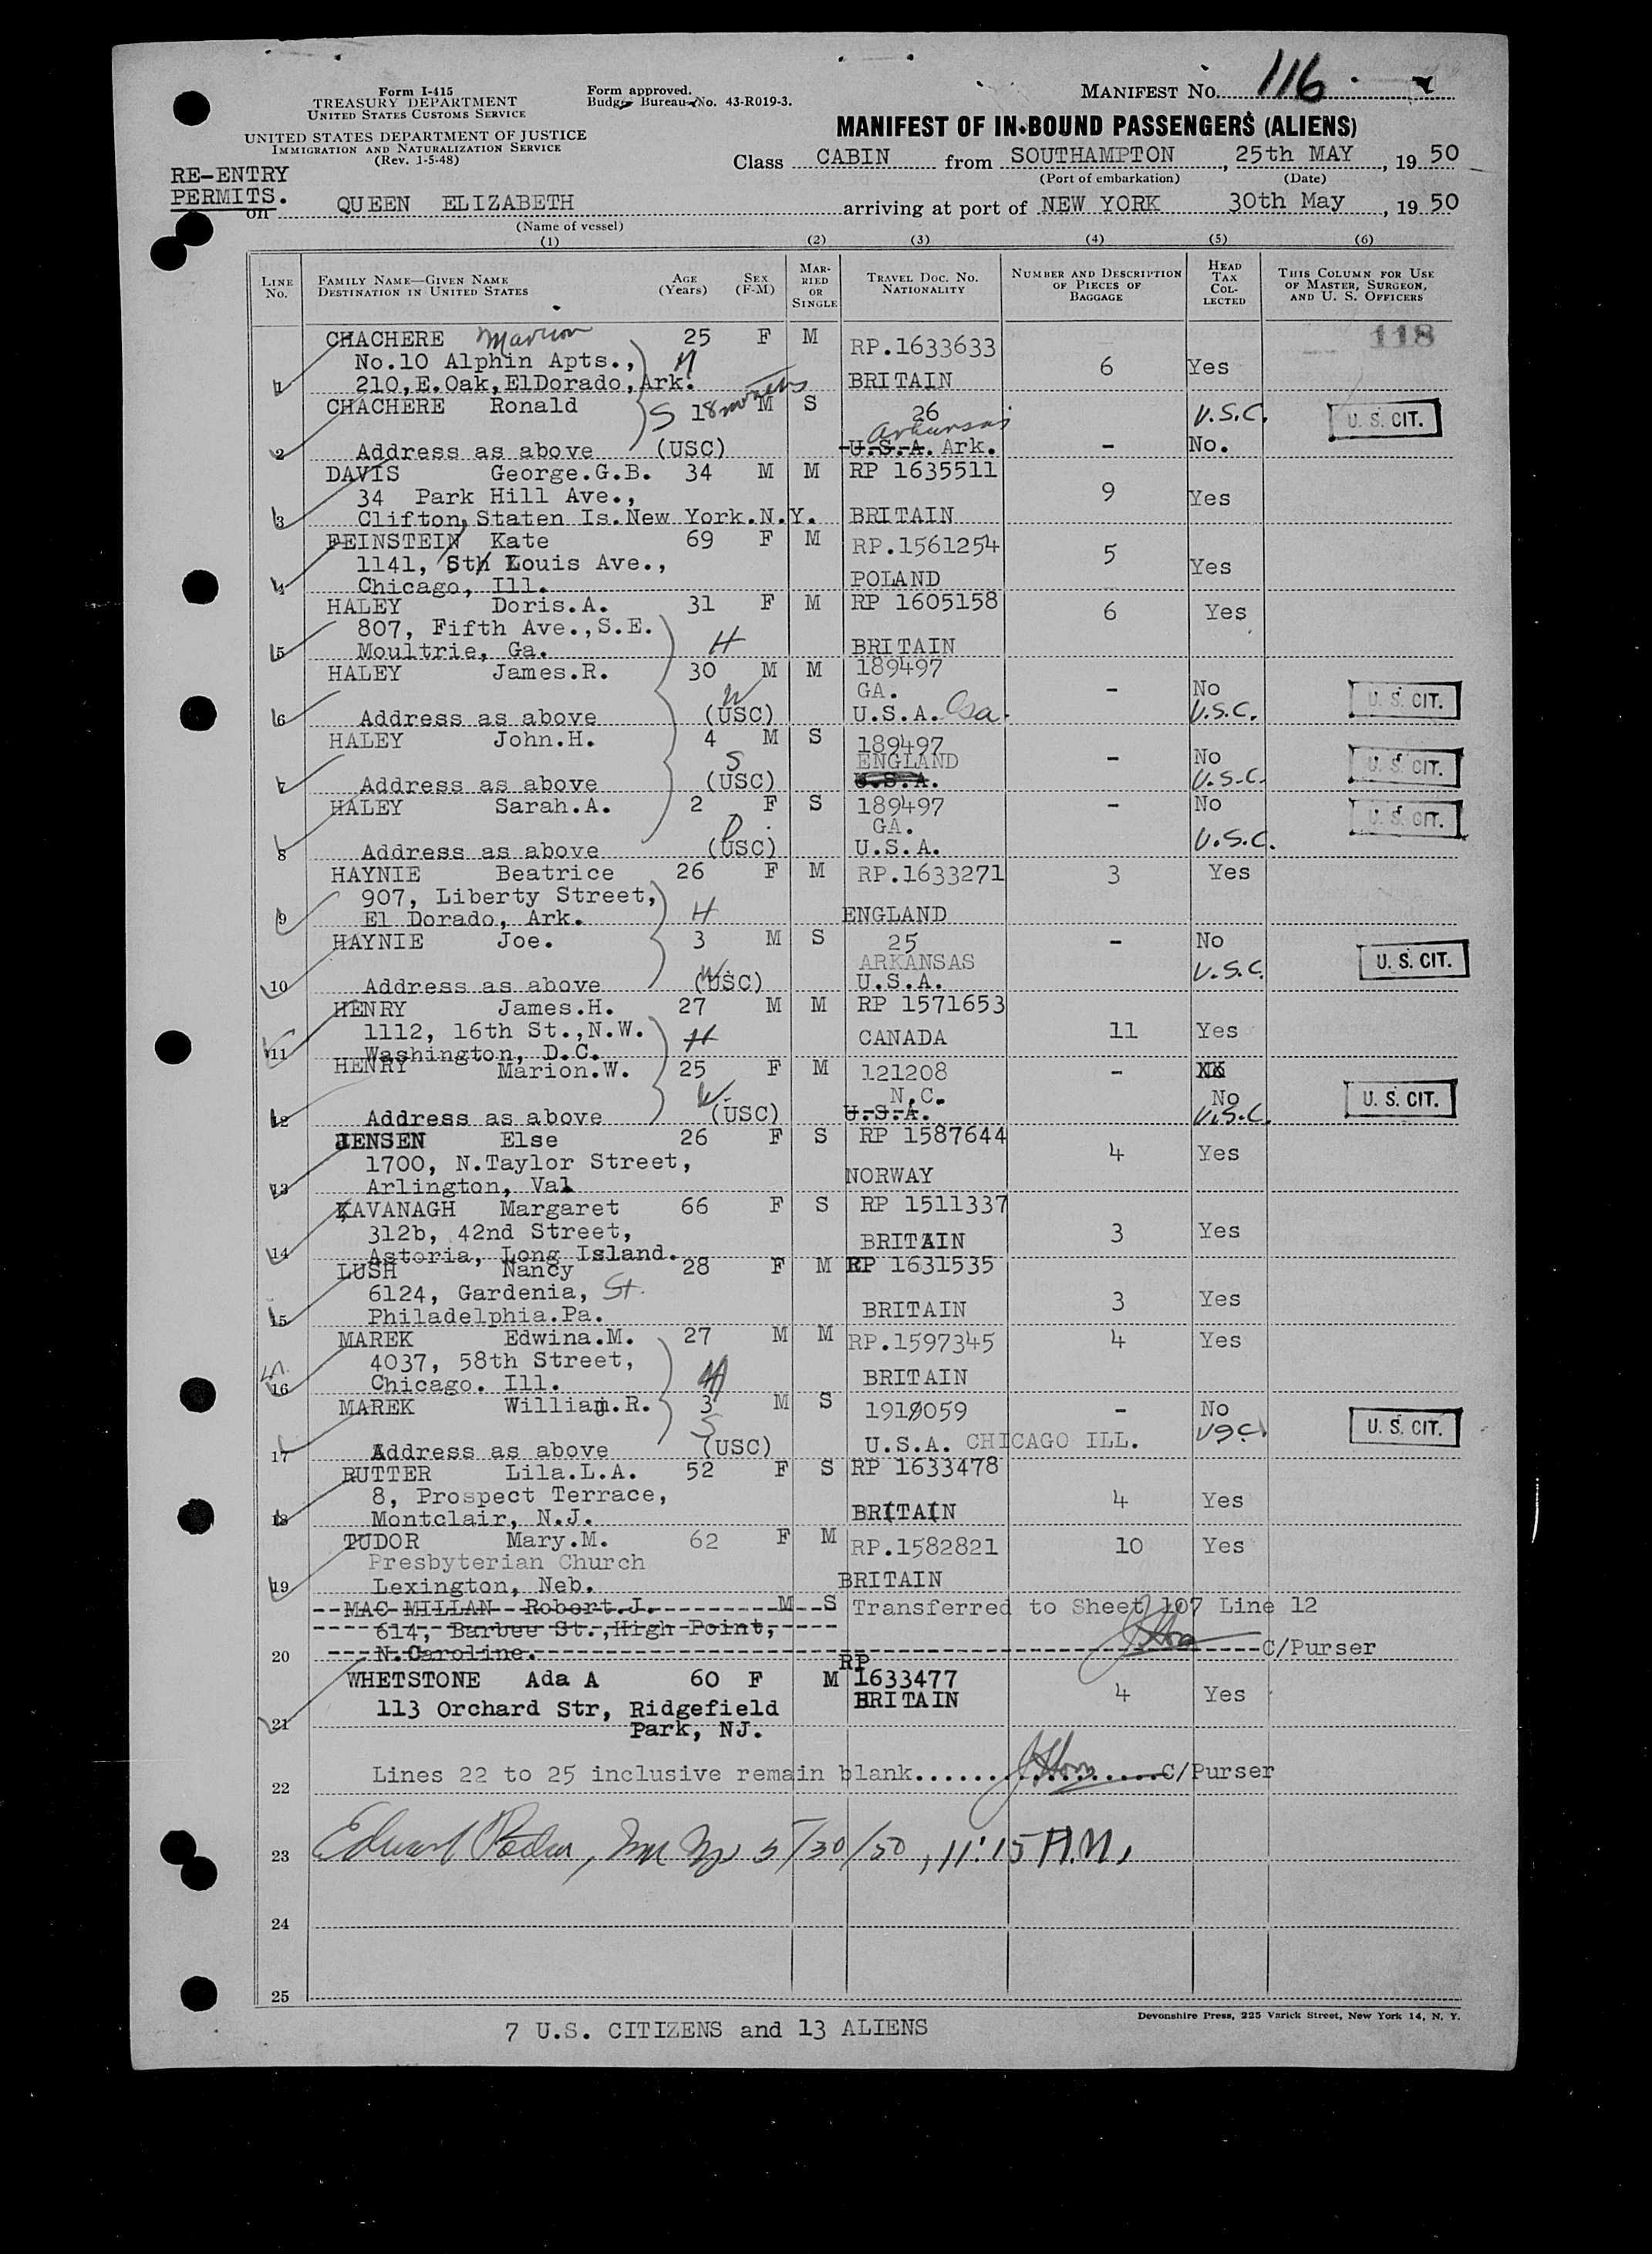 Form I-415
TREASURY DEPARTMENT
UNITED STATES CUSTOMS SERVICE
UNITED STATES DEPARTMENT OF JUSTICE
IMMIGRATION AND NATURALIZATION SERVICE
(Rev. 1-5-48)
Form approved.
Budget Bureau No. 43-R019-3.
MANIFEST NO. 116
MANIFEST OF IN-BOUND PASSENGERS (ALIENS)
Class CABIN from SOUTHAMPTON, 25th MAY, 1950
(Port of embarkation) (Date)
RE-ENTRY
PERMITS.
on QUEEN ELIZABETH arriving at port of NEW YORK 30th May, 1950
(Name of vessel)
(1) (2) (3) (4) (5) (6)
LINE NO. FAMILY NAME—GIVEN NAME DESTINATION IN UNITED STATES AGE (Years) SEX (F-M) MARRIED OR SINGLE TRAVEL DOC. NO. NATIONALITY NUMBER AND DESCRIPTION OF PIECES OF BAGGAGE HEAD TAX COLLECTED THIS COLUMN FOR USE OF MASTER, SURGEON, AND U. S. OFFICERS
118
CHACHERE Marion 25 F M RP.1633633
No.10 Alphin Apts., H 6 Yes
1 210,E.Oak,ElDorado,Ark. BRITAIN
CHACHERE Ronald S 18 months M S 26 U.S.C. U. S. CIT.
Arkansas
2 Address as above (USC) U.S.A. Ark. - No.
DAVIS George.G.B. 34 M M RP 1635511
34 Park Hill Ave., 9 Yes
3 Clifton, Staten Is.New York.N.Y. BRITAIN
FEINSTEIN Kate 69 F M RP.1561254
1141, Sth Louis Ave., 5 Yes
4 Chicago, Ill. POLAND
HALEY Doris.A. 31 F M RP 1605158
807, Fifth Ave.,S.E. H 6 Yes
5 Moultrie, Ga. BRITAIN
HALEY James.R. 30 M M 189497
W GA. - No U. S. CIT.
6 Address as above (USC) U.S.A. Ga. U.S.C.
HALEY John.H. 4 M S 189497
S ENGLAND - No U. S. CIT.
7 Address as above (USC) U.S.A. U.S.C.
HALEY Sarah.A. 2 F S 189497 - No U. S. CIT.
D GA.
8 Address as above (USC) U.S.A. U.S.C.
HAYNIE Beatrice 26 F M RP.1633271 3 Yes
907, Liberty Street, H
9 El Dorado, Ark. ENGLAND
HAYNIE Joe. 3 M S 25 - No U. S. CIT.
ARKANSAS U.S.C.
10 Address as above (USC) U.S.A.
HENRY James.H. 27 M M RP 1571653
1112, 16th St.,N.W. H CANADA 11 Yes
11 Washington, D.C.
HENRY Marion.W. 25 F M 121208 -
W. N.C. No U. S. CIT.
12 Address as above (USC) U.S.A. U.S.C.
JENSEN Else 26 F S RP 1587644
1700, N.Taylor Street, 4 Yes
13 Arlington, Va NORWAY
KAVANAGH Margaret 66 F S RP 1511337
312b, 42nd Street, BRITAIN 3 Yes
14 Astoria, Long Island.
LUSH Nancy 28 F M RP 1631535
6124, Gardenia, St. 3 Yes
15 Philadelphia.Pa. BRITAIN
MAREK Edwina.M. 27 M M RP.1597345 4 Yes
4037, 58th Street, H
16 Chicago. Ill. BRITAIN
MAREK William.R. 3 M S 1919059 - No
S USC U. S. CIT.
17 Address as above (USC) U.S.A. CHICAGO ILL.
RUTTER Lila.L.A. 52 F S RP 1633478
8, Prospect Terrace, 4 Yes
18 Montclair, N.J. BRITAIN
TUDOR Mary.M. 62 F M RP.1582821 10 Yes
Presbyterian Church
19 Lexington, Neb. BRITAIN
MAC MILLAN Robert.J. M S Transferred to Sheet 107 Line 12
614, Barbee St.,High Point,
20 N.Caroline. C/Purser
WHETSTONE Ada A 60 F M RP 1633477
113 Orchard Str, Ridgefield BRITAIN 4 Yes
21 Park, NJ.
22 Lines 22 to 25 inclusive remain blank.................C/Purser
23 Edward 5/30/50, 11:15 A.M.
24
25
Devonshire Press, 225 Varick Street, New York 14, N. Y.
7 U.S. CITIZENS and 13 ALIENS